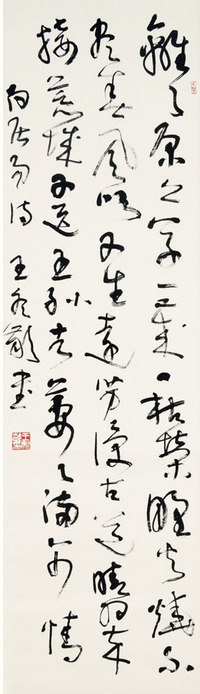 離々原上草一歲一枯榮野火燒不
盡春風吹又生遠芳侵古道晴翠
接荒城又送王孫去萋々滿別情
白居易詩 王冬齡書